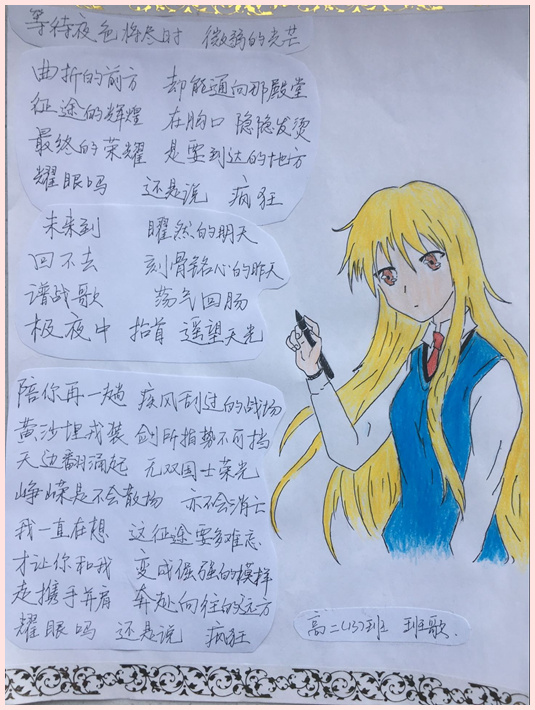 等待夜色将尽时 微弱的光芒
曲折的前方 却能通向那殿堂
征途的辉煌 在胸口隐隐发烫
最终的荣耀 是要到达的地方
耀眼吗 还是说 疯狂
未来到 曜然的明天
回不去 刻骨铭心的昨天
谱战歌 荡气回肠
极夜中 抬首 遥望天光
陪你再一趟 疾风刮过的战场
黄沙埋戎装 剑所指势不可挡
天边翻涌起 无双国士荣光
峥嵘是不会散场 亦不会消亡
我一直在想 这征途要多难忘
才让你和我 变成倔强的模样
走携手并肩 奔赴向往的远方
耀眼吗 还是说 疯狂
高二(13)班 班歌.